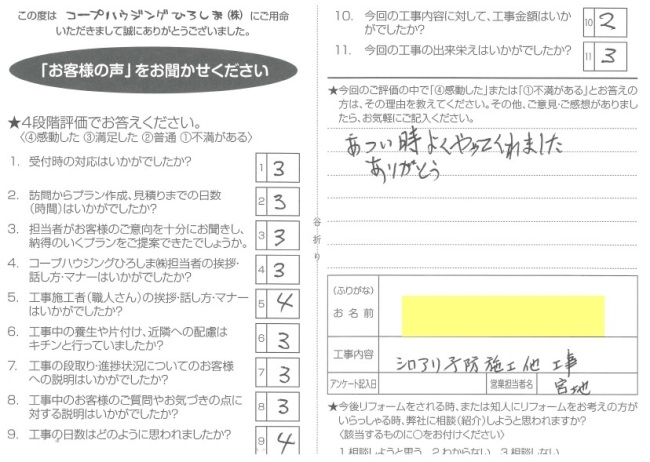 この度は コープハウジングひろしま(株) にご用命
いただきまして誠にありがとうございました。
「お客様の声」をお聞かせください
★4段階評価でお答えください。
〈④感動した ③満足した ②普通 ①不満がある〉
1. 受付時の対応はいかがでしたか?
1 3
2. 訪問からプラン作成、見積りまでの日数
(時間)はいかがでしたか?
2 3
3. 担当者がお客様のご意向を十分にお聞きし、
納得のいくプランをご提案できたでしょうか。
3 3
4. コープハウジングひろしま㈱担当者の挨拶・
話し方・マナーはいかがでしたか?
4 3
5. 工事施工者(職人さん)の挨拶・話し方・マナー
はいかがでしたか?
5 4
6. 工事中の養生や片付け、近隣への配慮は
キチンと行っていましたか?
6 3
7. 工事の段取り・進捗状況についてのお客様
への説明はいかがでしたか?
7 3
8. 工事中のお客様のご質問やお気づきの点に
対する説明はいかがでしたか?
8 3
9. 工事の日数はどのように思われましたか?
9 4
谷折り
10. 今回の工事内容に対して、工事金額はいか
がでしたか?
10 2
11. 今回の工事の出来栄えはいかがでしたか?
11 3
★今回のご評価の中で「④感動した」または「①不満がある」とお答えの
方は、その理由を教えてください。その他、ご意見・ご感想がありまし
たら、お気軽にご記入ください。
あつい時よくやってくれました
ありがとう
(ふりがな)
お名前
工事内容
シロアリ予防施工他工事
アンケート記入日
営業担当者名
宮地
★今後リフォームをされる時、または知人にリフォームをお考えの方が
いらっしゃる時、弊社に相談(紹介)しようと思われますか?
〈該当するものに○をお付けください〉
1.相談しようと思う 2.わからない 3.相談しない